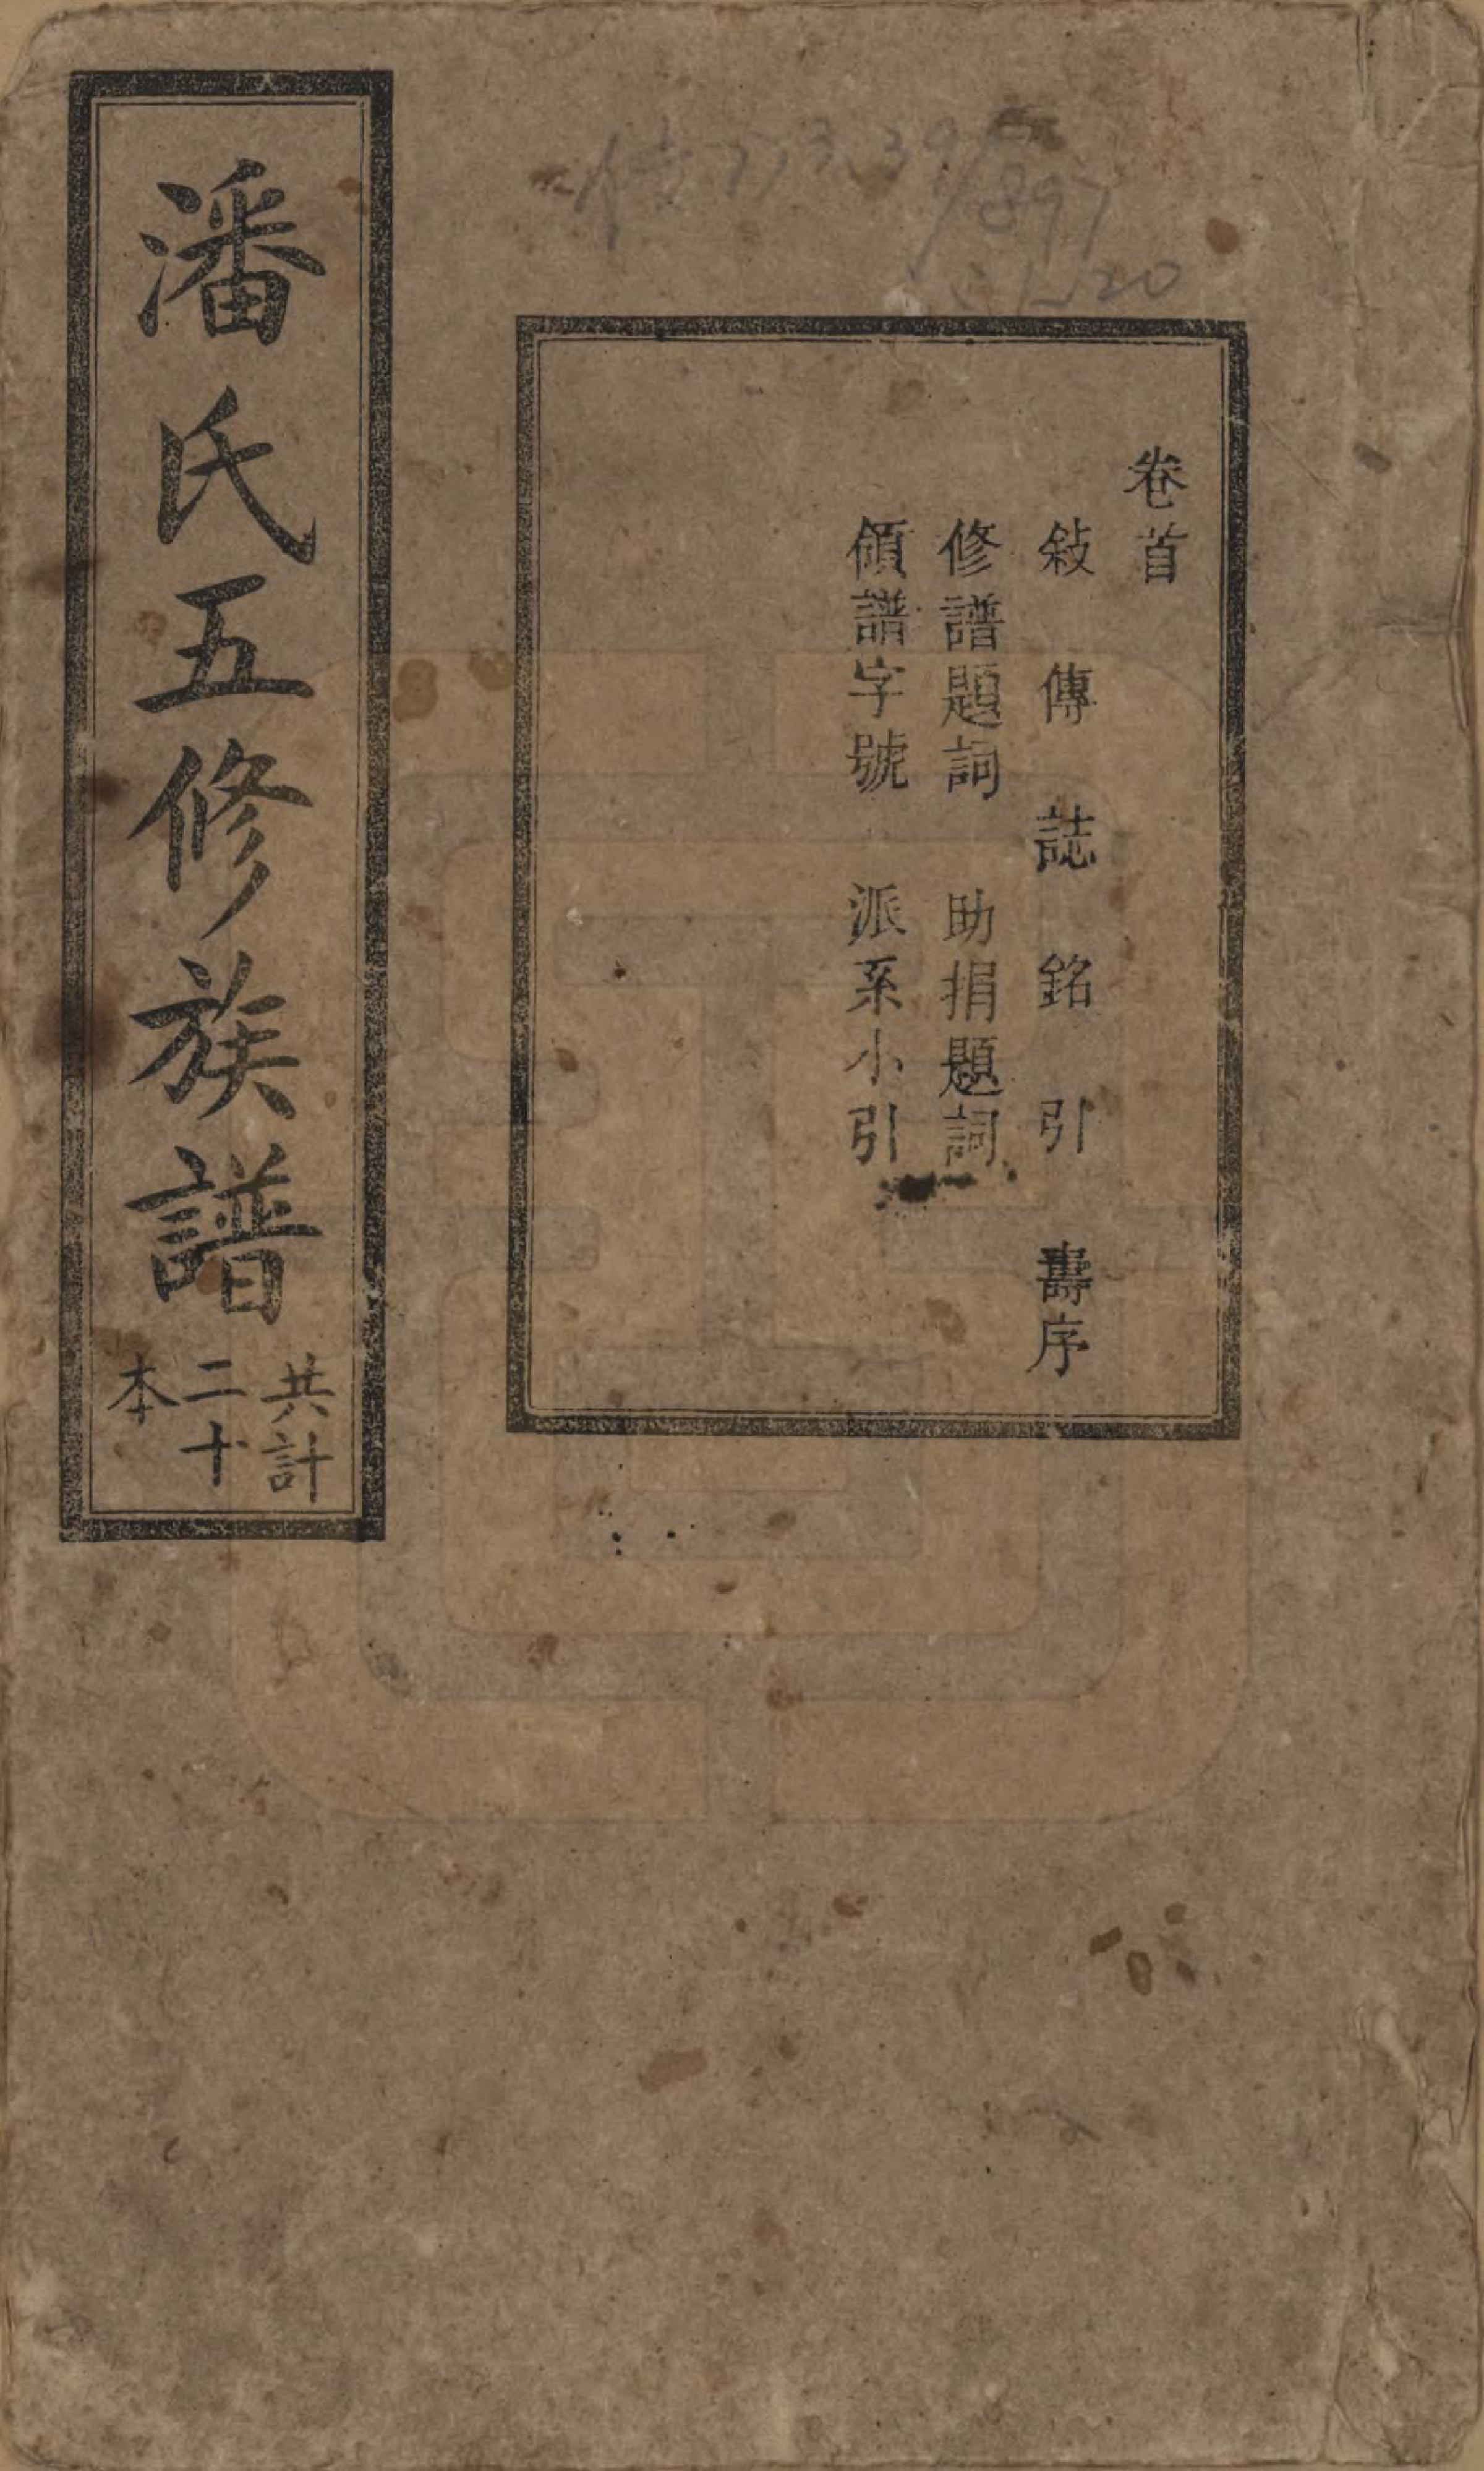 傳773.39/897
:1~20
卷首
敍傳誌銘引 壽序
修譜題詞 助捐題詞
領譜字號 派系小引
潘氏五修族譜
共計
二十
本